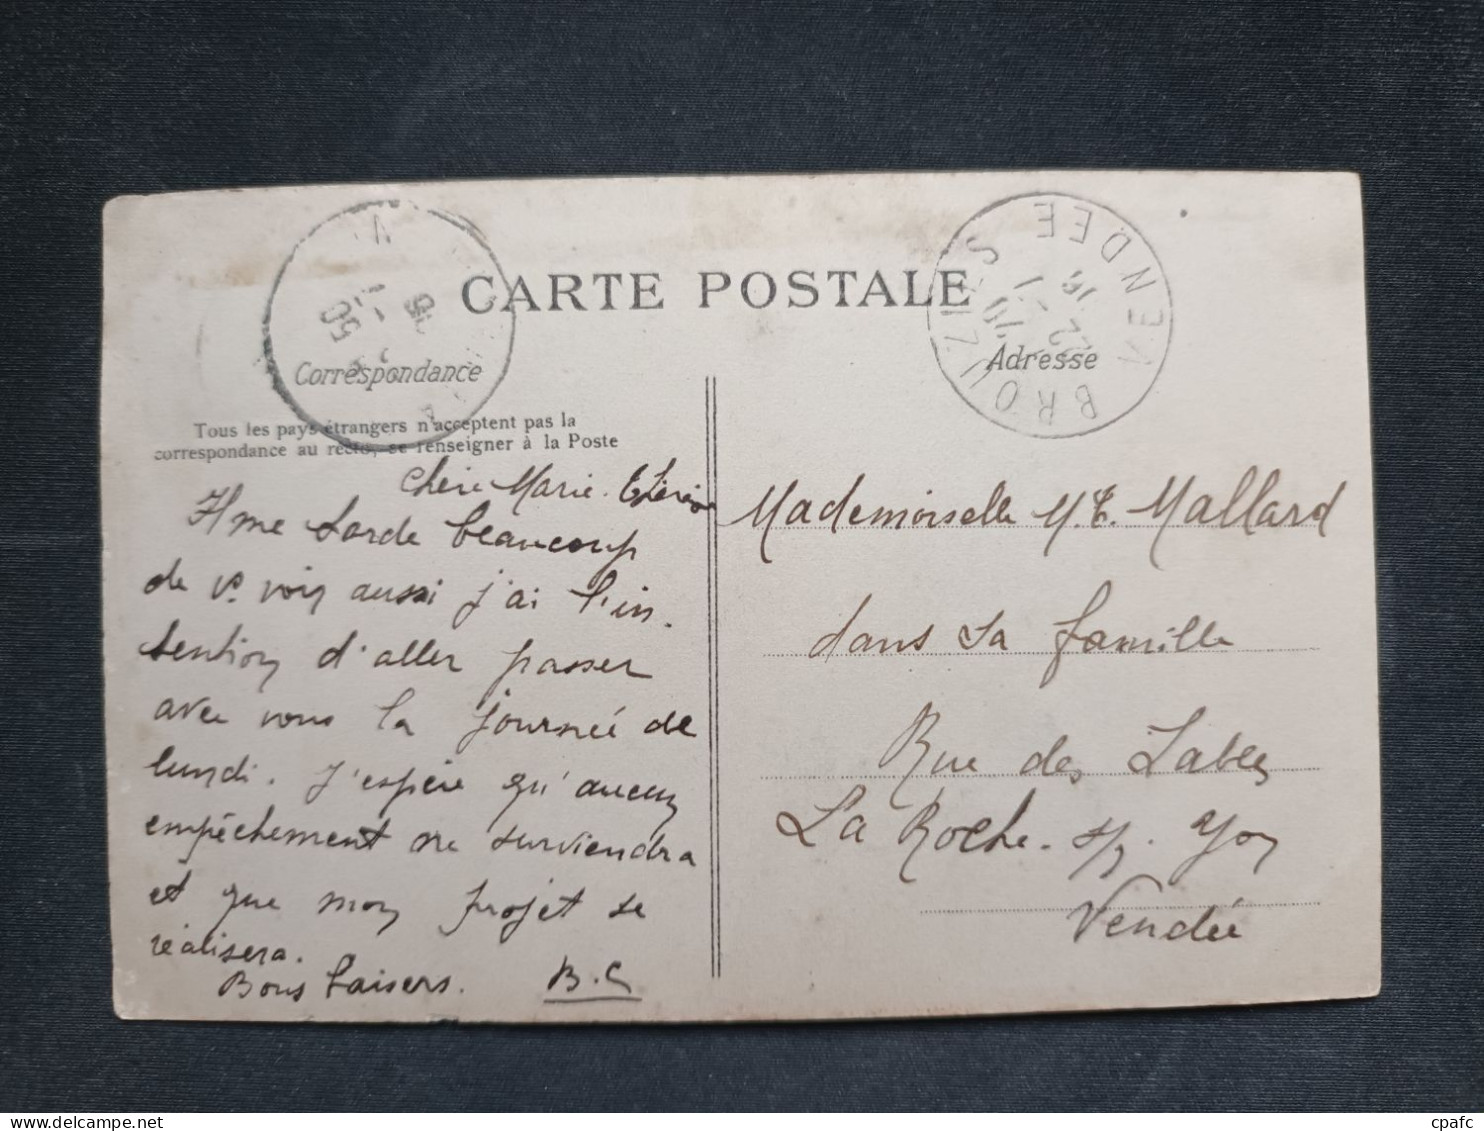 CARTE POSTALE
Correspondance
Adresse
Tous les pays étrangers n'acceptent pas la
correspondance au recto, se renseigner à la Poste
BROUZILS VENDEE
22 1
Chère Marie-Thérèse
Il me tarde beaucoup
de vs voir aussi j'ai l'in-
tention d'aller passer
avec vous la journée de
lundi. J'espère qu'aucun
empêchement ne surviendra
et que mon projet se
réalisera.
Bons baisers. B.C
Mademoiselle M.T. Mallard
dans sa famille
Rue des Sables
La Roche-s/-Yon
Vendée
cpafc